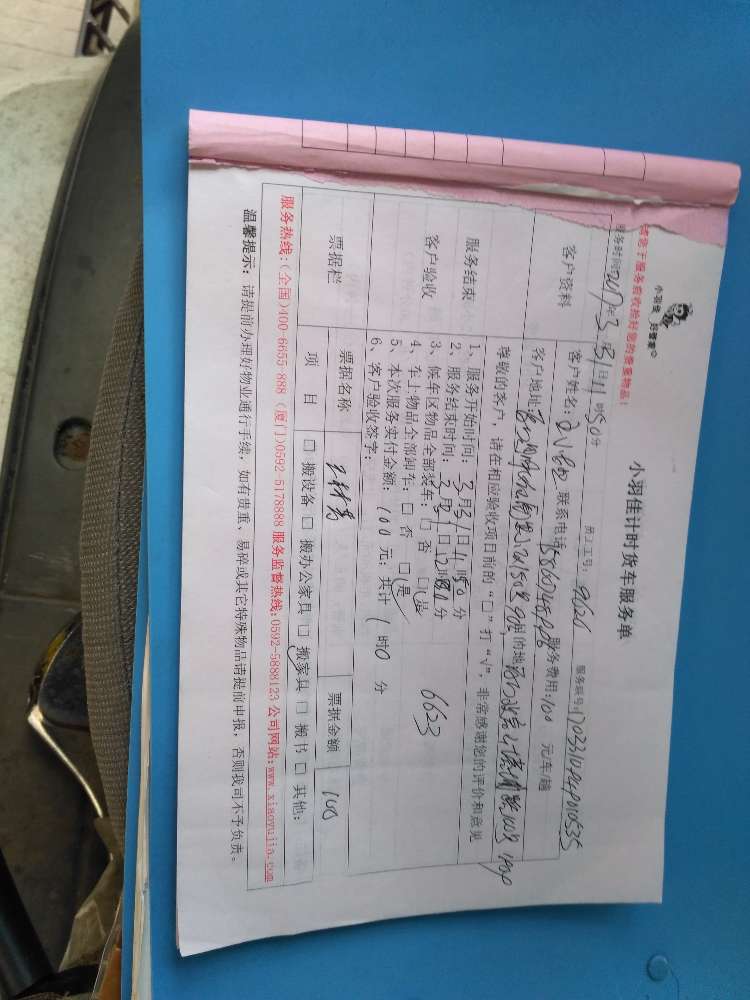 小羽佳 好管家
小羽佳计时货车服务单
请您于服务前收捡好您的贵重物品!
员工工号: 9626 服务账号: 17033110944010535
服务时间: 2017年3月31日11时50分
客户资料
客户姓名: 联系电话: 服务费用: 100 元/车/趟
客户地址:
尊敬的客户, 请在相应验收项目前的“□”打“√”, 非常感谢您的评价和意见
服务结束
客户验收
1、服务开始时间: 3月31日11时50分
2、服务结束时间: 3月31日12时50分
3、候车区物品全部装车: □ 否 □ 是
4、车上物品全部卸车: □ 否 □ 是
5、本次服务实付金额: 100 元; 共计 1 时 0 分
6、客户验收签字:
6623
票据栏
票据名称 票据金额 100
项 目 □ 搬设备 □ 搬办公家具 □ 搬家具 □ 搬书 □ 其他:
服务热线:(全国)400-6655-888 (厦门)0592-5178888 服务监督热线:0592-5888123 公司网站:www.xiaoyujia.com
温馨提示: 请提前办理好物业通行手续, 如有贵重、易碎或其它特殊物品请提前申报, 否则我司不予负责。